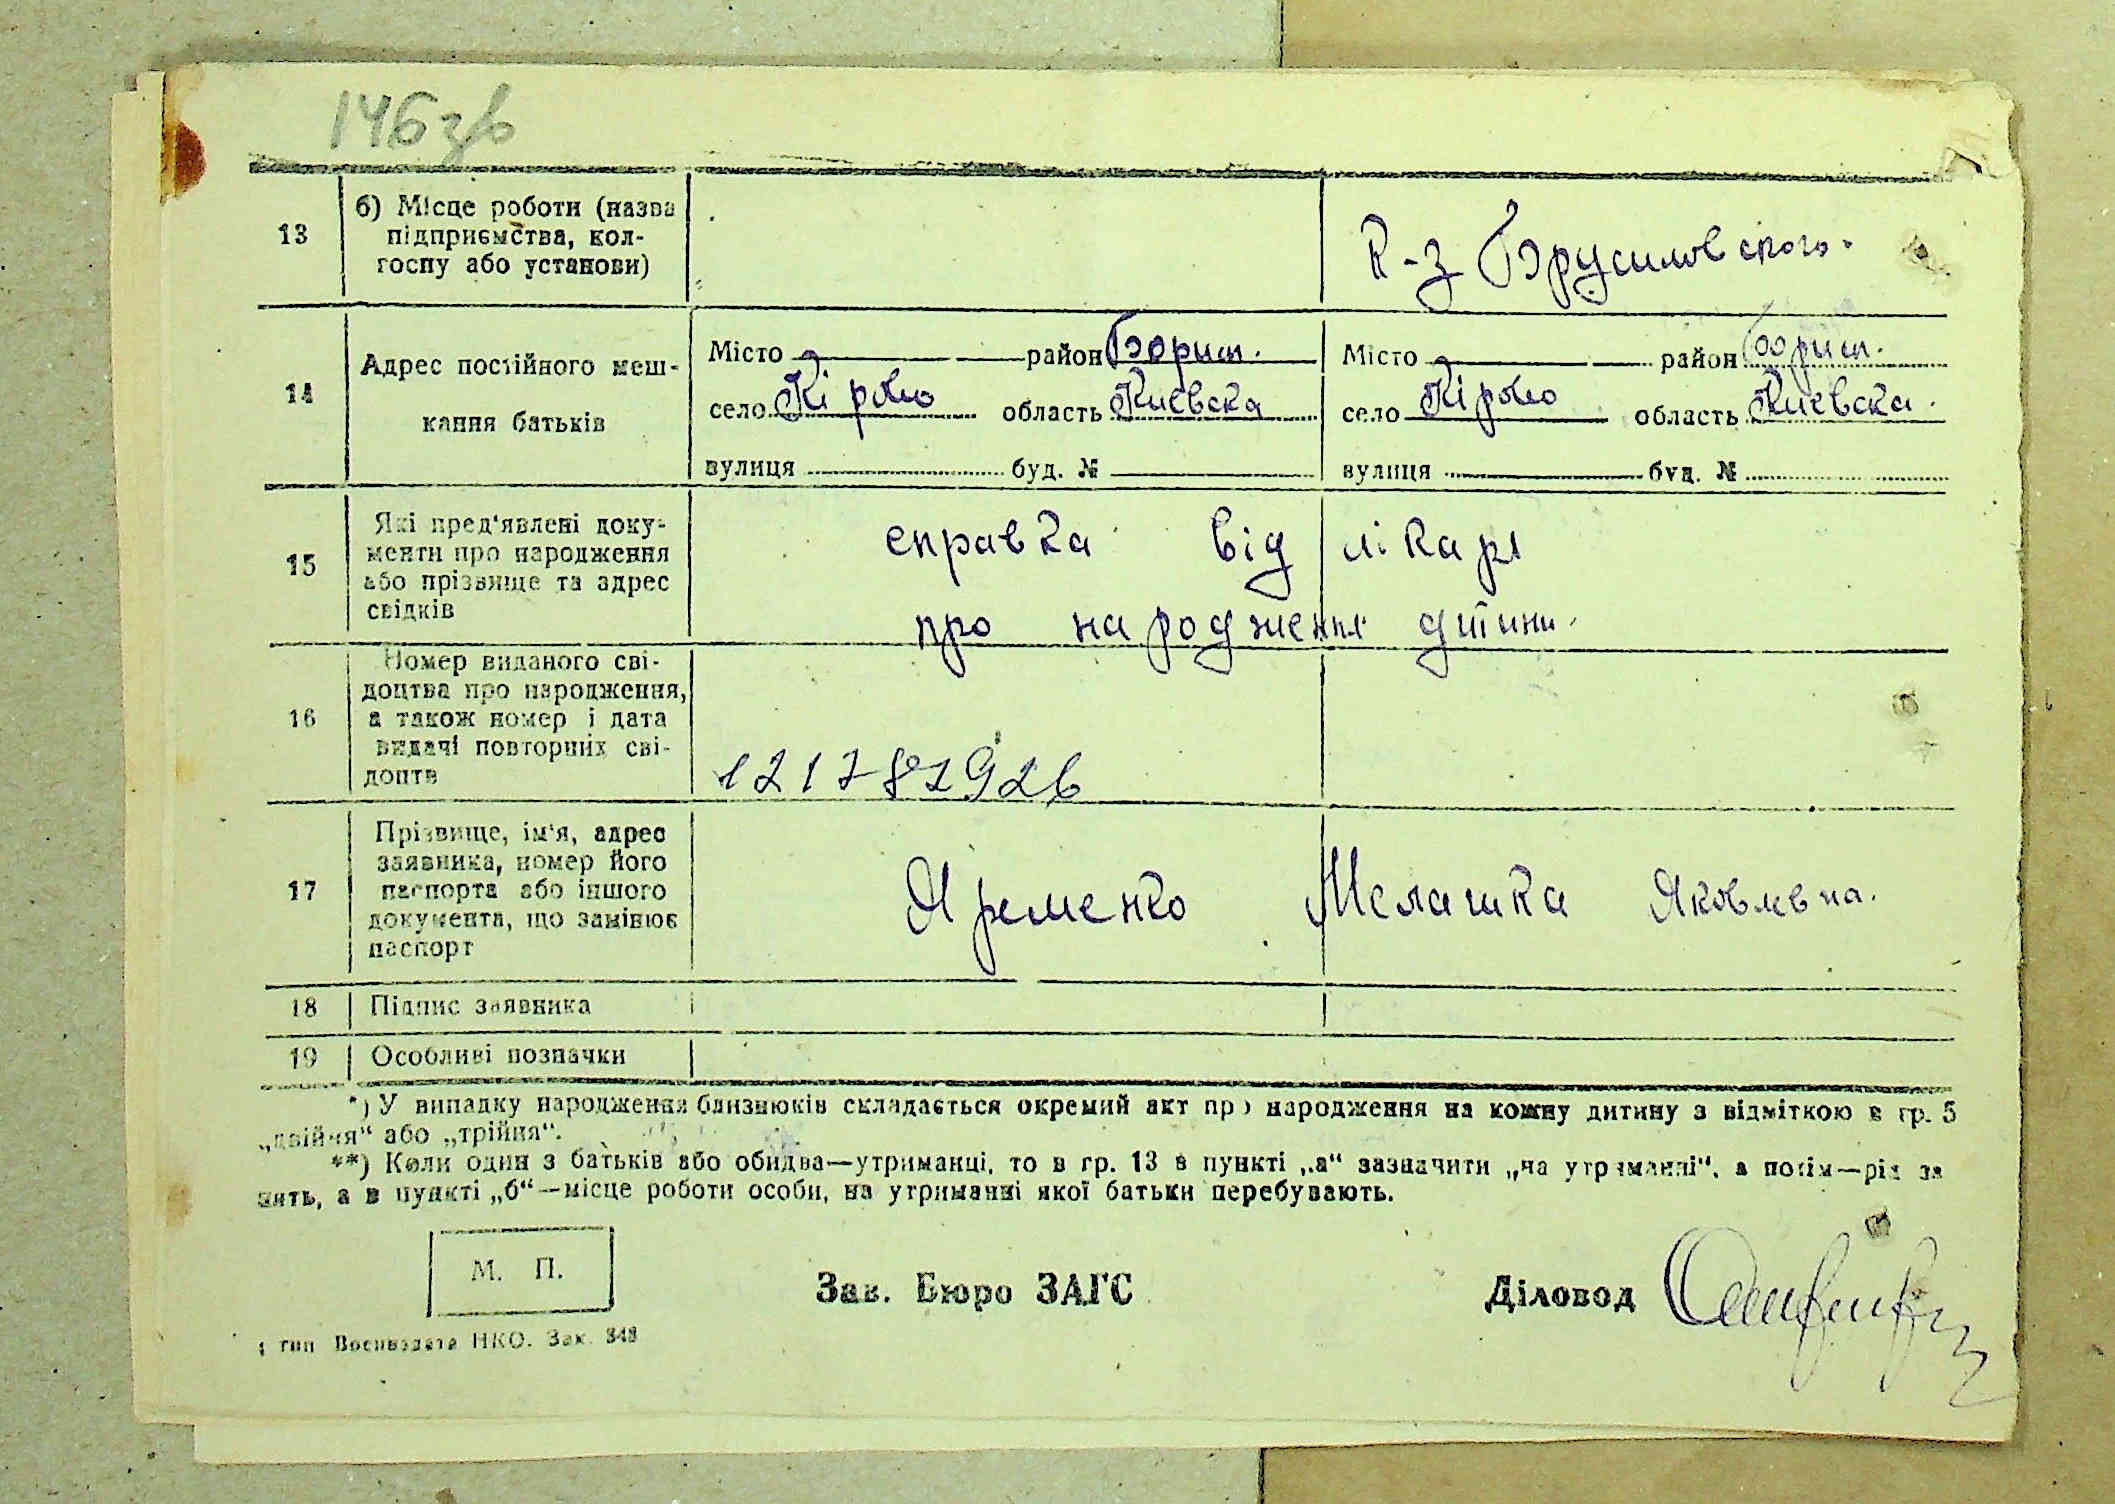 146 зв
13
б) Місце роботи (назва
підприємства, кол-
госпу або установи)
К-з Брусиловского.
14
Адрес постійного меш-
кання батьків
Місто район Борисп.
село Кірово область Киевска
вулиця буд. №
Місто район Борисп.
село Кірово область Киевска.
вулиця буд. №
15
Які пред'явлені доку-
менти про народження
або прізвище та адрес
свідків
справка від лікаря
про народження дитини.
16
Номер виданого сві-
доцтва про народження,
а також номер і дата
видачі повторних сві-
доцтв
17
Прізвище, ім'я, адрес
заявника, номер його
паспорта або іншого
документа, що замінює
паспорт
Яременко Мелашка Яковлевна.
18 Підпис заявника
19 Особливі позначки
*) У випадку народження близнюків складається окремий акт про народження на кожну дитину з відміткою в гр. 5
„двійня“ або „трійня“.
**) Коли один з батьків або обидва—утриманці, то в гр. 13 в пункті „а“ зазначити „на утриманні“, а потім—рід за
нять, а в пункті „б“—місце роботи особи, на утриманні якої батьки перебувають.
М. П.
Зав. Бюро ЗАГС
Діловод
тип Воениздата НКО. Зак. 348